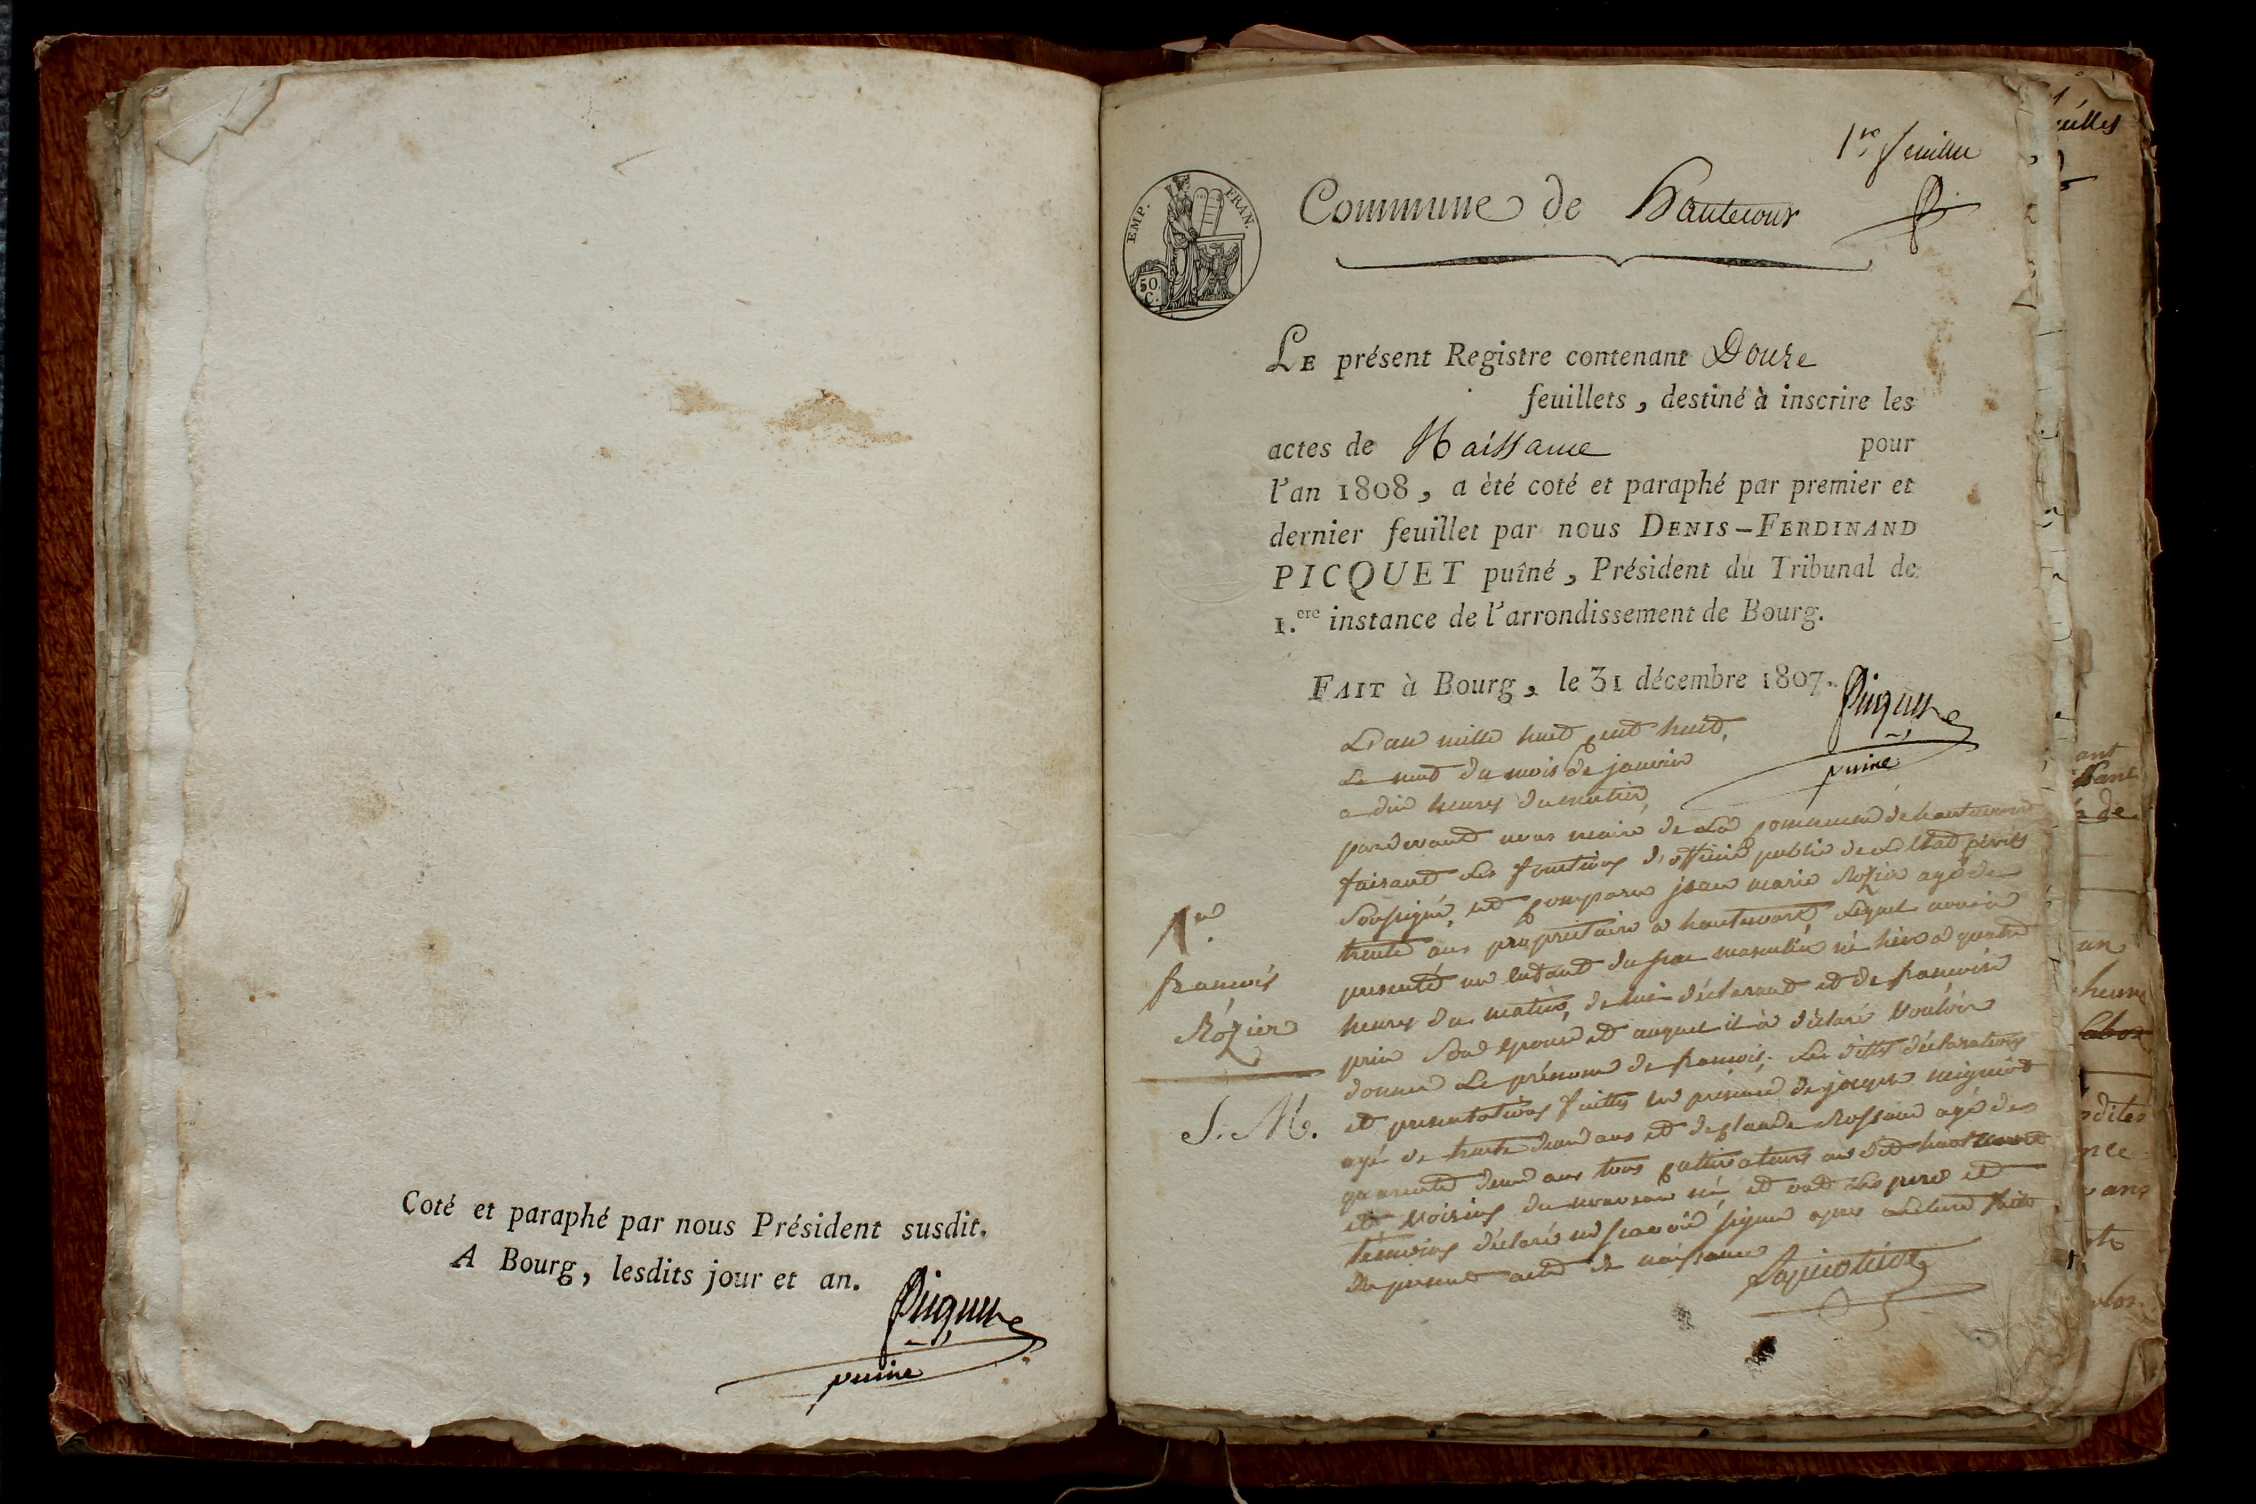 Coté et paraphé par nous Président susdit.
A Bourg, lesdits jour et an.
Picquet
puiné
1re feuillet
EMP. FRAN.
50 C.
Commune de hautecour
LE présent Registre contenant Douze
feuillets, destiné à inscrire les
actes de Naissance pour
l'an 1808, a èté coté et paraphé par premier et
dernier feuillet par nous DENIS-FERDINAND
PICQUET puîné, Président du Tribunal de
1.ere instance de l'arrondissement de Bourg.
FAIT à Bourg, le 31 décembre 1807.
Picquet
puiné
L'an mille huit cent huit,
Le neuf du mois de janvier
a dix heures du matin
pardevant nous maire de La commune de hautecourt
faisant Les fonctions d'officier public de L'Etat civil
Soussigné, est comparu jean marie Rozier agé de
trente ans propriétaire a hautecourt, Lequel nous a
presenté un enfant du sexe masculin né hier a quatre
heures du matin, de lui déclarant et de francoise
Son épouse et auquel il a déclaré vouloir
donner Le prénom de francois. Les dittes déclarations
et presentations faittes en présence de jacques
agé de trente deux ans et de claude agé de
quarente deux ans tous cultivateurs au dit hautecourt
et voisins du nouveau né et ont Les pere et
témoins déclaré ne scavoir signer apres Lecture faite
du present acte de naissance
1er
francois
Rozier
S. M.